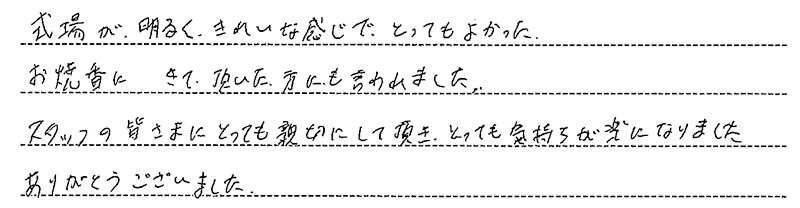 式場が、明るく、きれいな感じで、とってもよかった.
お焼香に きて、頂いた、方にも言われました。
スタッフの皆さまにとっても親切にして頂き、とっても気持ちが楽になりました
ありがとうございました.